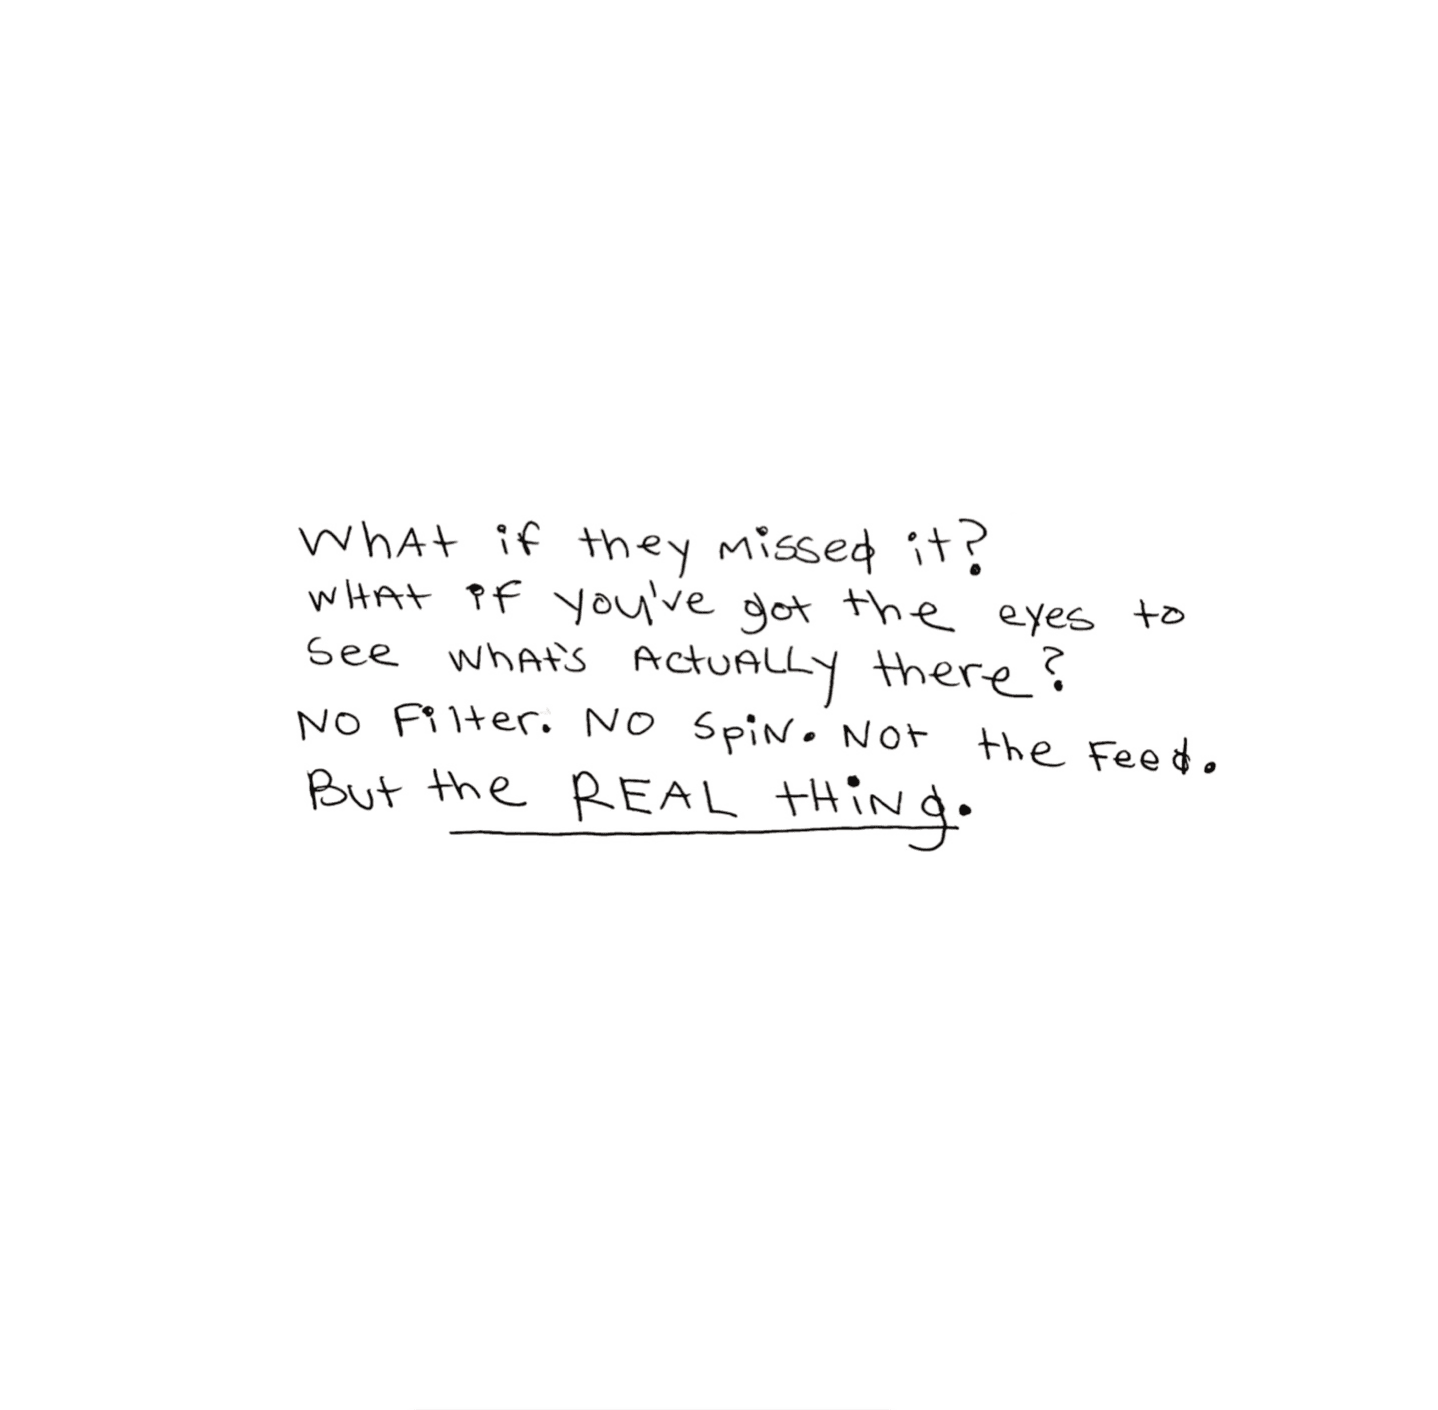 WhAt if they Missed it?
WHAt if you've got the eyes to
See WhAt's ActUALLy there?
NO Filter. NO SpiN. NOt the Feed.
But the REAL tHiNg.